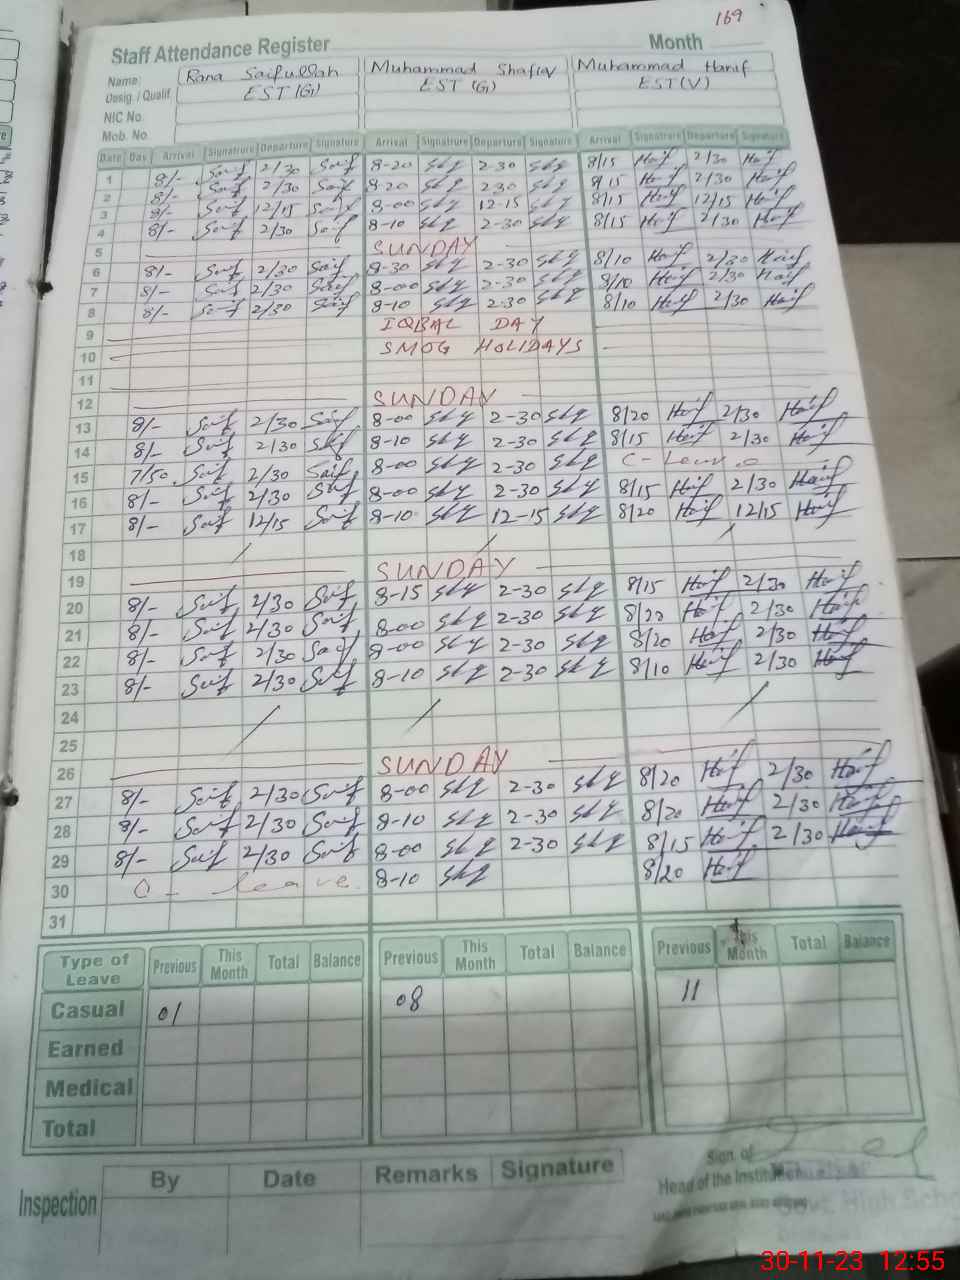 169
Staff Attendance Register Month
Name: Rana Saifullah Muhammad Shafiq Muhammad Hanif
Desig. / Qualif. EST (G) EST (G) EST (V)
NIC No.
Mob. No.
Date Day Arrival Signature Departure Signature Arrival Signature Departure Signature Arrival Signature Departure Signature
1 8/- Saif 2/30 Saif 8-20 2-30 8/15 Hanif 2/30 Hanif
2 8/- Saif 2/30 Saif 8-20 2-30 8/15 Hanif 2/30 Hanif
3 8/- Saif 12/15 Saif 8-00 12-15 8/15 Hanif 12/15 Hanif
4 8/- Saif 2/30 Saif 8-10 2-30 8/15 Hanif 2/30 Hanif
5 SUNDAY
6 8/- Saif 2/30 Saif 8-30 2-30 8/10 Hanif 2/30 Hanif
7 8/- Saif 2/30 Saif 8-00 2-30 8/10 Hanif 2/30 Hanif
8 8/- Saif 2/30 Saif 8-10 2-30 8/10 Hanif 2/30 Hanif
9 IQBAL DAY
10 SMOG HOLIDAYS
11
12 SUNDAY
13 8/- Saif 2/30 Saif 8-00 2-30 8/20 Hanif 2/30 Hanif
14 8/- Saif 2/30 Saif 8-10 2-30 8/15 Hanif 2/30 Hanif
15 7/50 Saif 2/30 Saif 8-00 2-30 C-Leave
16 8/- Saif 2/30 Saif 8-00 2-30 8/15 Hanif 2/30 Hanif
17 8/- Saif 12/15 Saif 8-10 12-15 8/20 Hanif 12/15 Hanif
18
19 SUNDAY
20 8/- Saif 2/30 Saif 8-15 2-30 8/15 Hanif 2/30 Hanif
21 8/- Saif 2/30 Saif 8-00 2-30 8/20 Hanif 2/30 Hanif
22 8/- Saif 2/30 Saif 8-00 2-30 8/20 Hanif 2/30 Hanif
23 8/- Saif 2/30 Saif 8-10 2-30 8/10 Hanif 2/30 Hanif
24
25
26 SUNDAY
27 8/- Saif 2/30 Saif 8-00 2-30 8/20 Hanif 2/30 Hanif
28 8/- Saif 2/30 Saif 8-10 2-30 8/20 Hanif 2/30 Hanif
29 8/- Saif 2/30 Saif 8-00 2-30 8/15 Hanif 2/30 Hanif
30 leave 8-10 8/20 Hanif
31
Type of Leave Previous This Month Total Balance Previous This Month Total Balance Previous This Month Total Balance
Casual 01 08 11
Earned
Medical
Total
Inspection By Date Remarks Signature
Sign. of
Head of the Institute
Govt. High School
30-11-23 12:55